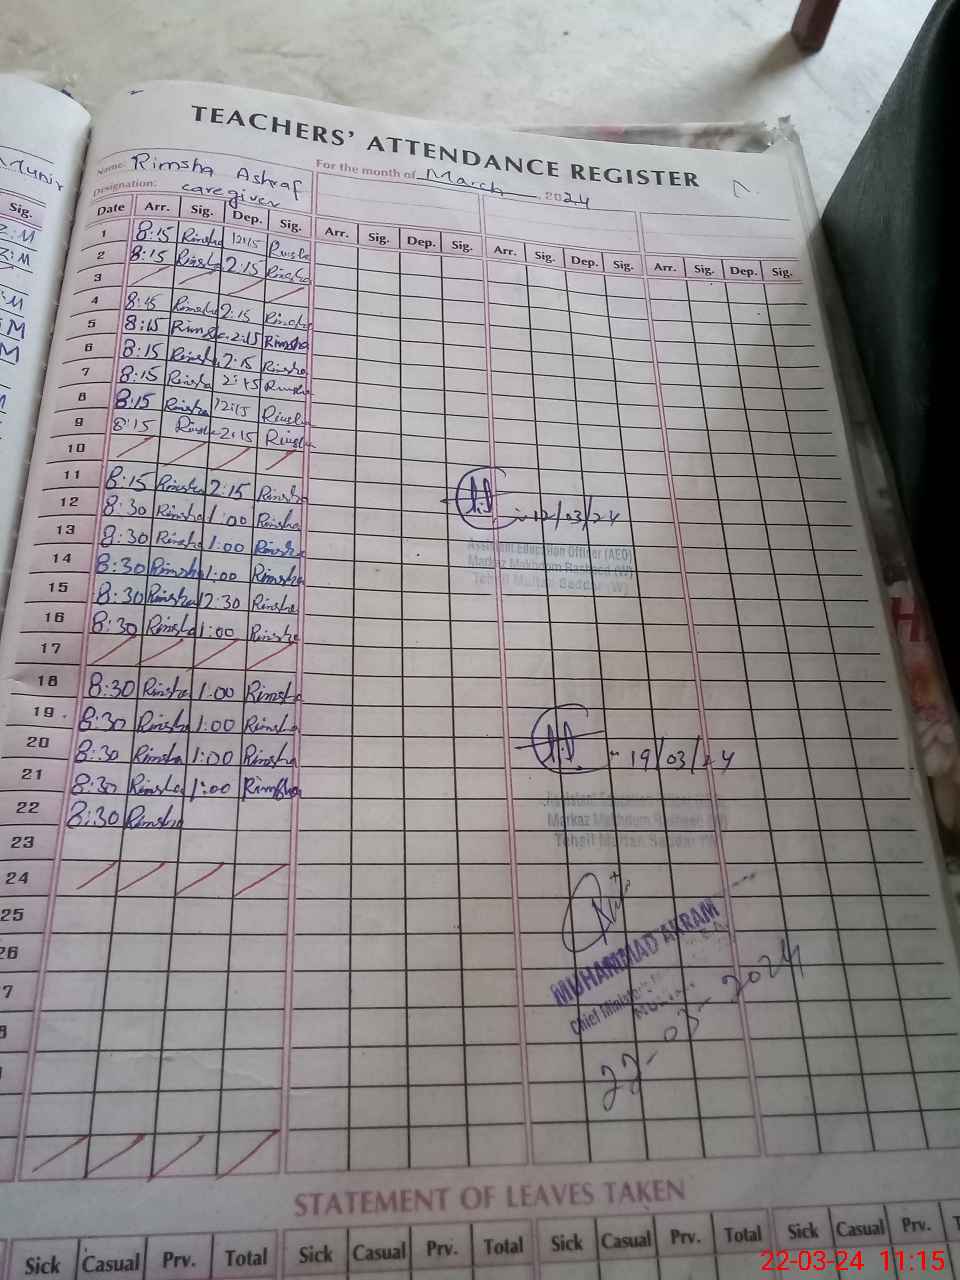 TEACHERS' ATTENDANCE REGISTER
Name: Rimsha Ashraf For the month of March, 2024
Designation: caregiver
Date Arr. Sig. Dep. Sig. Arr. Sig. Dep. Sig. Arr. Sig. Dep. Sig. Arr. Sig. Dep. Sig.
1 8:15 Rimsha 12:15 Rimsha
2 8:15 Rimsha 2:15 Rimsha
3
4 8:15 Rimsha 2:15 Rimsha
5 8:15 Rimsha 2:15 Rimsha
6 8:15 Rimsha 2:15 Rimsha
7 8:15 Rimsha 2:15 Rimsha
8 8:15 Rimsha 12:15 Rimsha
9 8:15 Rimsha 2:15 Rimsha
10
11 8:15 Rimsha 2:15 Rimsha
12 8:30 Rimsha 1:00 Rimsha
12/03/24
13 8:30 Rimsha 1:00 Rimsha
Assistant Education Officer (AEO)
Markaz Makhdum Rasheed (W)
Tehsil Multan Saddar (W)
14 8:30 Rimsha 1:00 Rimsha
15 8:30 Rimsha 12:30 Rimsha
16 8:30 Rimsha 1:00 Rimsha
17
18 8:30 Rimsha 1:00 Rimsha
19 8:30 Rimsha 1:00 Rimsha
19/03/24
20 8:30 Rimsha 1:00 Rimsha
21 8:30 Rimsha 1:00 Rimsha
22 8:30 Rimsha
Markaz Makhdum Rasheed (W)
Tehsil Multan Saddar (W)
23
24
25
MUHAMMAD AKRAM
Chief Minister's
22-03-2024
STATEMENT OF LEAVES TAKEN
Sick Casual Prv. Total Sick Casual Prv. Total Sick Casual Prv. Total Sick Casual Prv.
22-03-24 11:15